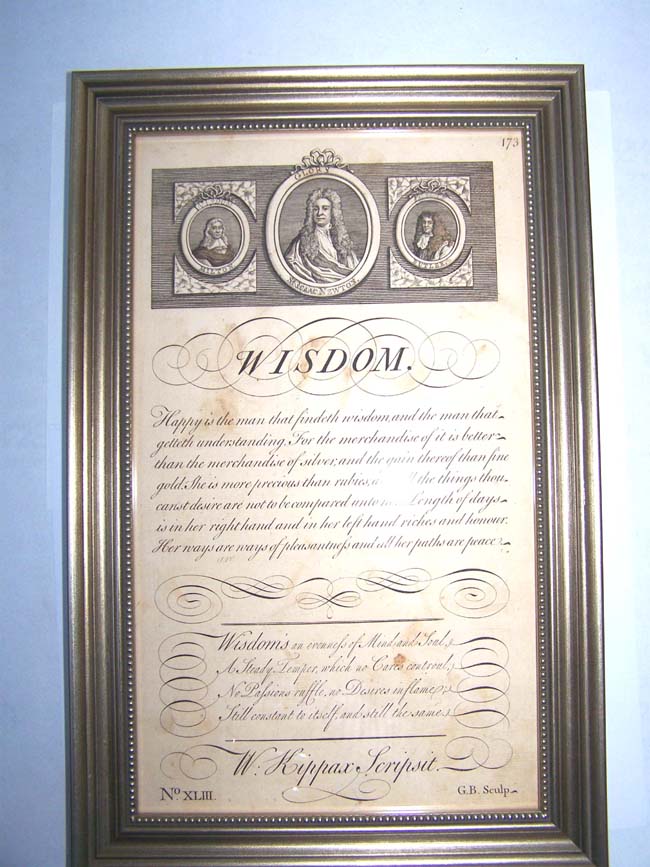 173
GLORY
MILTON
Sr. ISAAC NEWTON.
BUTLER.
WISDOM.
Happy is the man that findeth wisdom, and the man that
getteth understanding. For the merchandise of it is better
than the merchandise of silver, and the gain thereof than fine
gold. She is more precious than rubies, the things thou
canst desire are not to be compared unto Length of days
is in her right hand and in her left hand riches and honour.
Her ways are ways of pleasantness and all her paths are peace
Wisdom's an evenness of Mind and Soul,
A Steady Temper, which no Cares controul,
No Passions ruffle, no Desires inflame,
Still constant to itself, and still the same.
W: Kippax Scripsit.
No. XLIII.
G.B. Sculp.